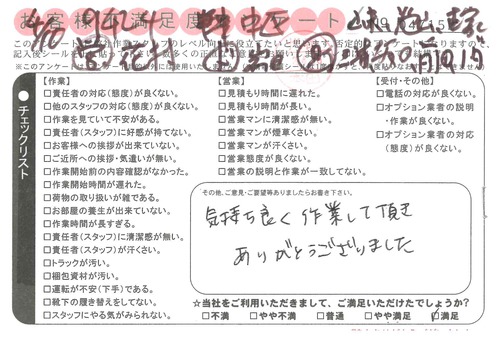 お客様満足度アンケート
【作業】
□責任者の対応(態度)が良くない。
□他のスタッフの対応(態度)が良くない。
□作業を見ていて不安がある。
□責任者(スタッフ)に好感が持てない。
□お客様への挨拶が出来ていない。
□ご近所への挨拶・気遣いが無い。
□作業開始前の内容確認がなかった。
□作業開始時間が遅れた。
□荷物の取り扱いが雑である。
□お部屋の養生が出来ていない。
□作業時間が長すぎる。
□責任者(スタッフ)に清潔感が無い。
□責任者(スタッフ)が汗くさい。
□トラックが汚い。
□梱包資材が汚い。
□運転が不安(下手)である。
□靴下の履き替えをしてない。
□スタッフにやる気がみられない。
【営業】
□見積もり時間に遅れた。
□見積もり時間が長い。
□営業マンに清潔感が無い。
□営業マンが煙草くさい。
□営業マンが汗くさい。
□営業態度が良くない。
□営業の説明と作業が一致してない。
【受付・その他】
□電話の対応が良くない。
□オプション業者の説明
・作業が良くない。
□オプション業者の対応
(態度)が良くない。
チェックリスト
その他、ご意見・ご要望等ありましたらお書き下さい。
気持ち良く作業して頂き
ありがとうございました
☆当社をご利用いただきまして、ご満足いただけたでしょうか?
□不満 □やや不満 □普通 □やや満足 □満足